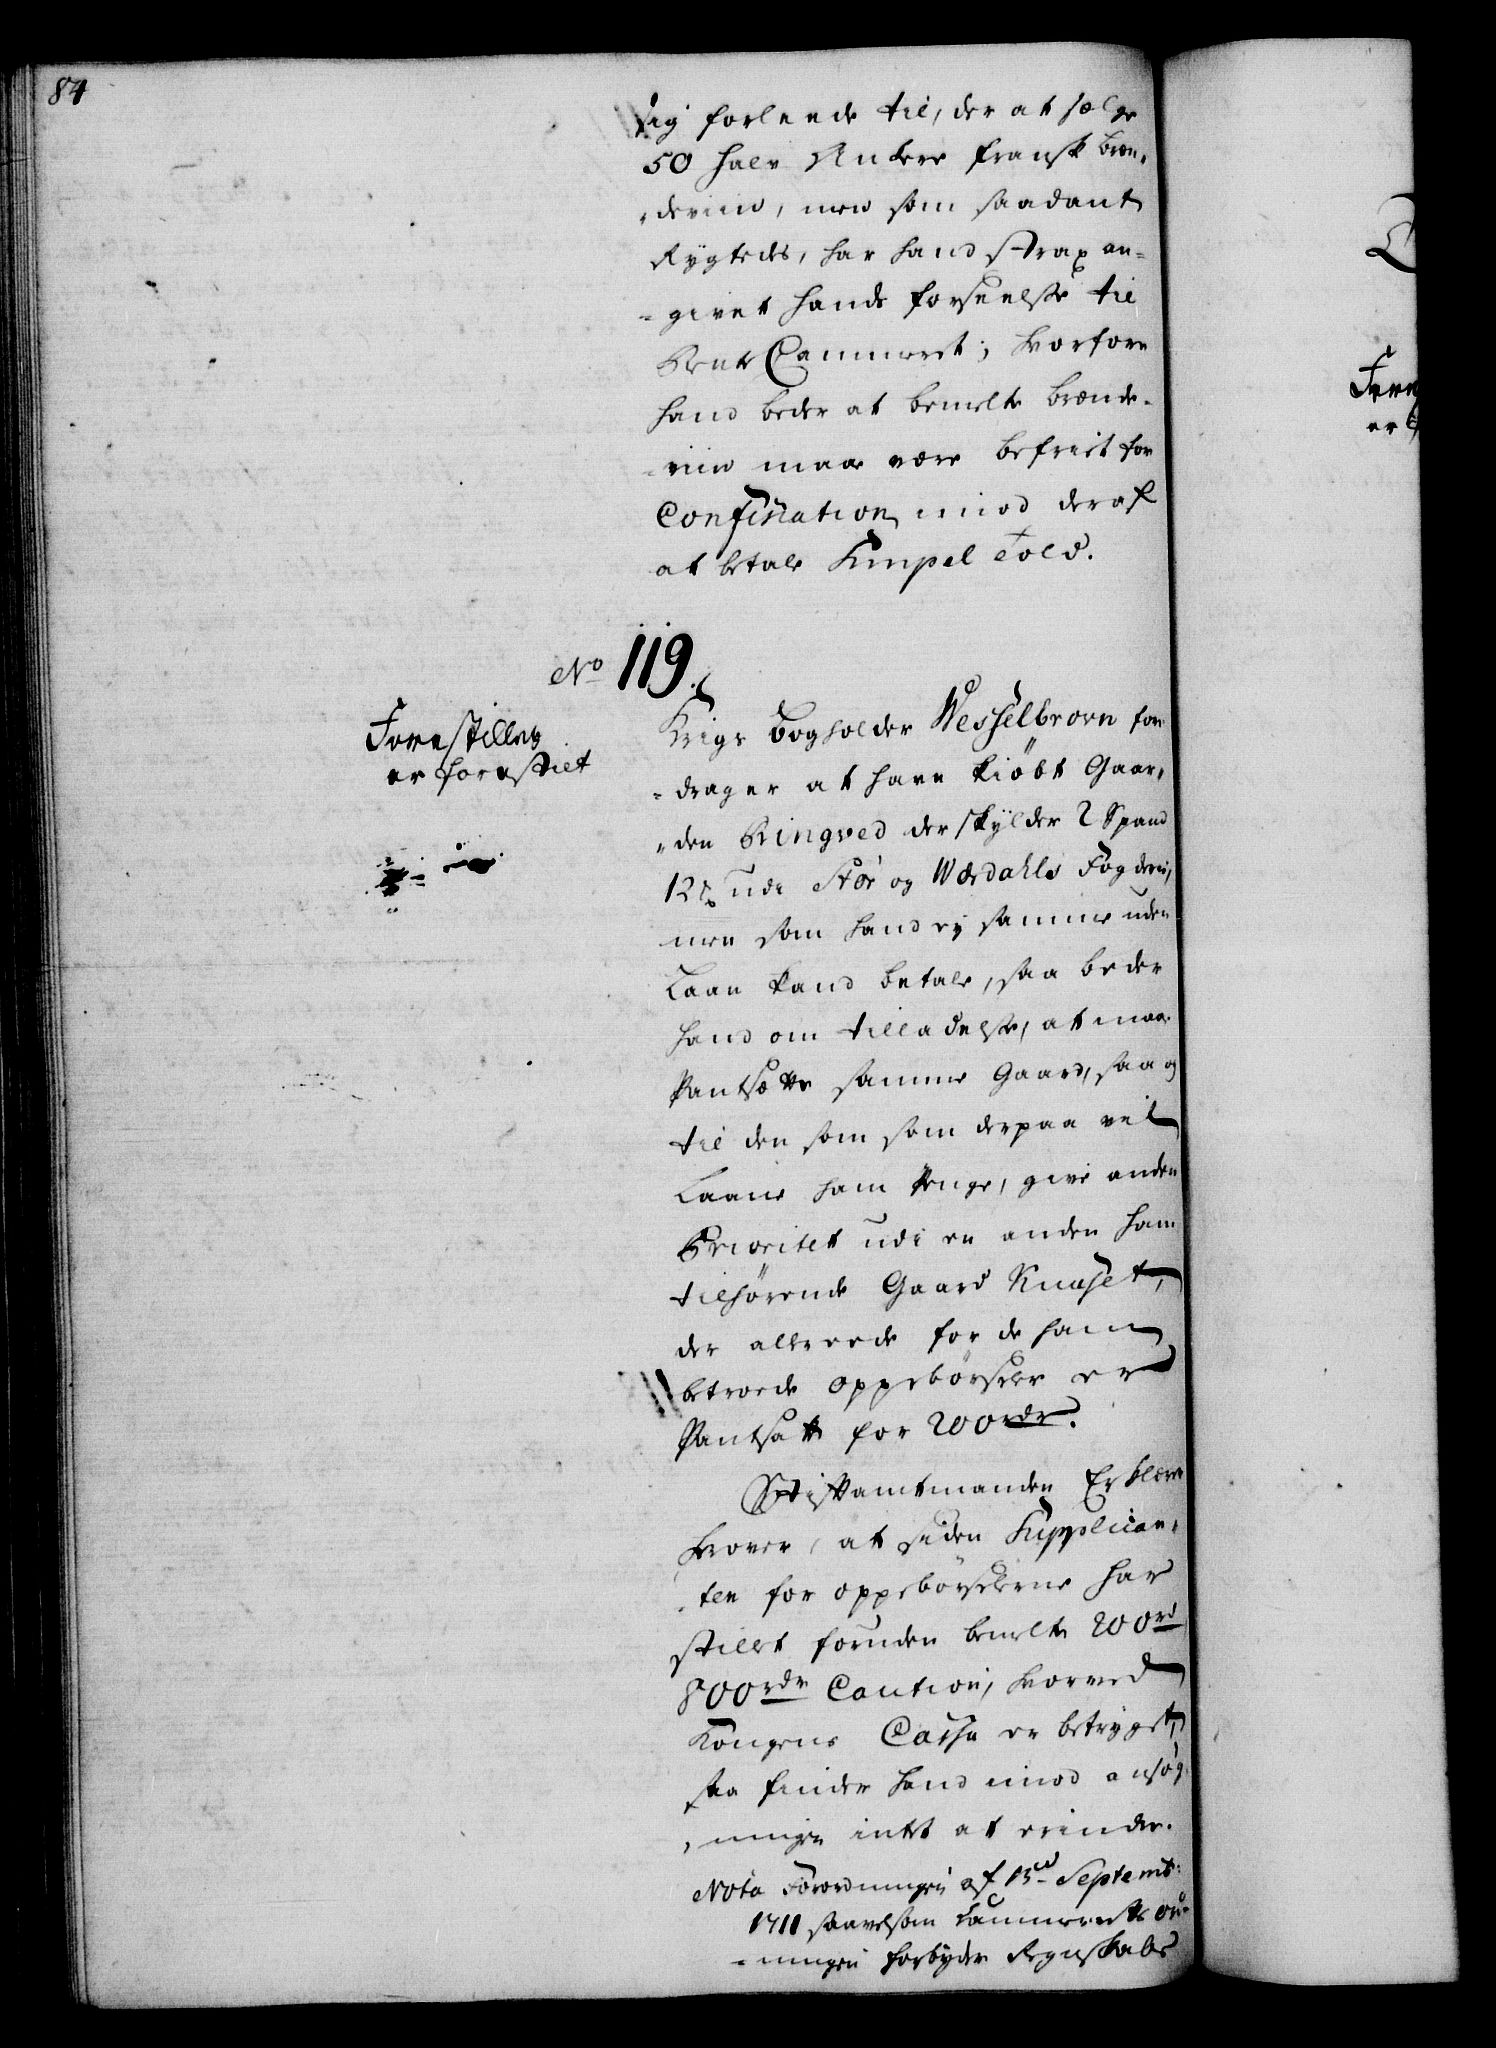 84
sig forleede til, der at sælge
50 halv Ankere fransk bræn„
„deviin, men som saadant
Rygtedes, har hand strax an=
=givet hands forseelse til
Rente Cammeret; hvorfore
hand beder at bemelte brænde-
-viin maae være befriet for
Confiskation imod deraf
at betale Simpel Told.
No 119.
Forestilles
er forestilet
Krigs bogholder Wesselbroen fore
=drager at have kiøbt Gaar„
„den Ringved der skylder 2 Spand
12 udi Stør og Wærdahls Fogderie,
men som hand ey samme uden
Laan kand betale, saa beder
hand om tilladelse, at maae
Pantsætte samme Gaard, saa og
til den som som derpaa vil
Laane ham Penge, give anden
Prioritet udi en anden ham
tilhørende Gaard Knuset,
der allereede for de ham
betroede oppebørseler er
Pantsatt for 200 rdr.
Stiftamtmanden Erklærer
hvorover, at siden Supplican„
„ten for oppebørselerne har
stillet foruden bemelte 200 rd
800 rdr Caution, hvorved
Kongens Cassa er betrygget,
saa finder hand imod ansøg„
„ningen intet at erindre.
Nota Forordningen af 13de Septemb:
1711 saavelsom Cammerets ord-
-ningen forbyder Regnskabs